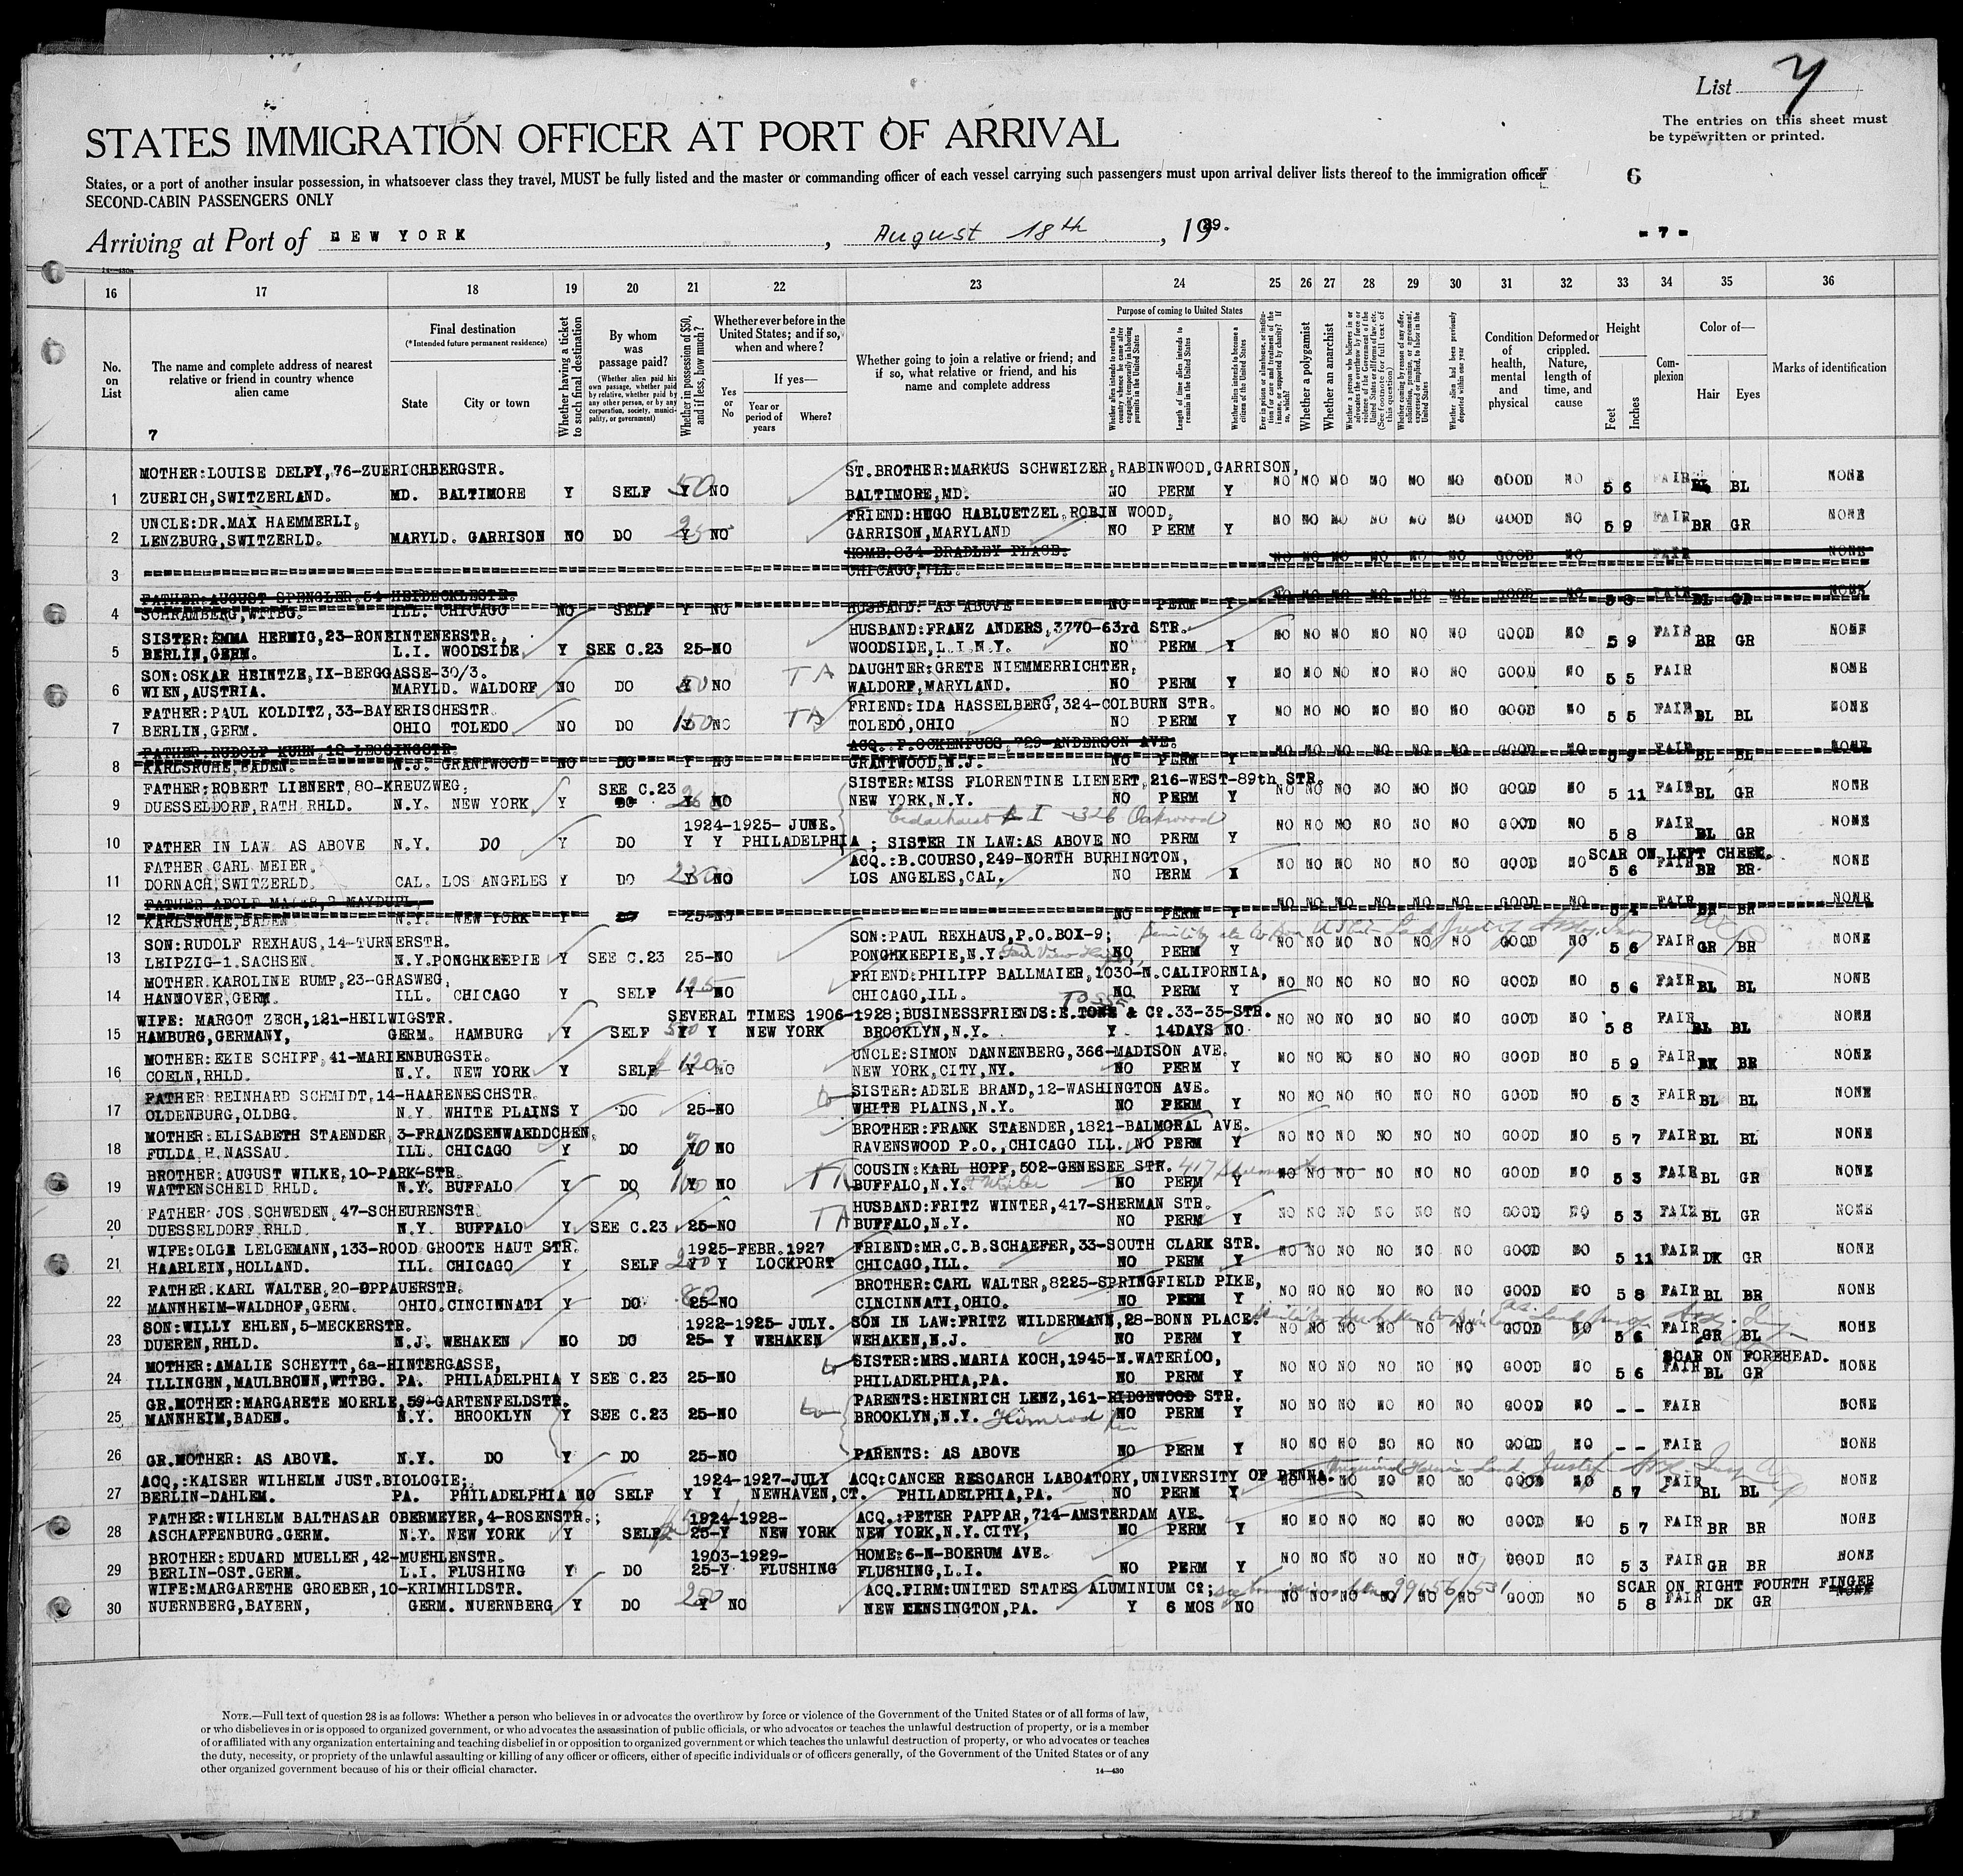 List 7
The entries on this sheet must
be typewritten or printed.
STATES IMMIGRATION OFFICER AT PORT OF ARRIVAL
States, or a port of another insular possession, in whatsoever class they travel, MUST be fully listed and the master or commanding officer of each vessel carrying such passengers must upon arrival deliver lists thereof to the immigration officer
6
SECOND-CABIN PASSENGERS ONLY
Arriving at Port of NEW YORK, August 18th, 1929.
- 7 -
14—430a
16 17 18 19 20 21 22 23 24 25 26 27 28 29 30 31 32 33 34 35 36
No. on List
The name and complete address of nearest relative or friend in country whence alien came
7
Final destination
(*Intended future permanent residence)
State
City or town
Whether having a ticket to such final destination
By whom was passage paid?
(Whether alien paid his own passage, whether paid by relative, whether paid by any other person, or by any corporation, society, municipality, or government)
Whether in possession of $50, and if less, how much?
Whether ever before in the United States; and if so, when and where?
Yes or No
If yes—
Year or period of years
Where?
Whether going to join a relative or friend; and if so, what relative or friend, and his name and complete address
Purpose of coming to United States
Whether alien intends to return to country whence he came after engaging temporarily in laboring pursuits in the United States
Length of time alien intends to remain in the United States
Whether alien intends to become a citizen of the United States
Ever in prison or almshouse, or institution for care and treatment of the insane, or supported by charity? If so, which?
Whether a polygamist
Whether an anarchist
Whether a person who believes in or advocates the overthrow by force or violence of the Government of the United States or all forms of law, etc. (See footnote for full text of this question)
Whether coming by reason of any offer, solicitation, promise, or agreement, expressed or implied, to labor in the United States
Whether alien had been previously deported within one year
Condition of health, mental and physical
Deformed or crippled. Nature, length of time, and cause
Height
Feet
Inches
Complexion
Color of—
Hair
Eyes
Marks of identification
MOTHER:LOUISE DELPY,76-ZUERICHBERGSTR. ST.BROTHER:MARKUS SCHWEIZER,RABINWOOD,GARRISON,
1 ZUERICH,SWITZERLAND. MD. BALTIMORE Y SELF Y 50 NO BALTIMORE,MD. NO PERM Y NO NO NO NO NO NO GOOD NO 5 6 FAIR BL BL NONE
UNCLE:DR.MAX HAEMMERLI, FRIEND:HUGO HABLUETZEL,ROBIN WOOD,
2 LENZBURG,SWITZERLD. MARYLD. GARRISON NO DO Y 25 NO GARRISON,MARYLAND NO PERM Y NO NO NO NO NO NO GOOD NO 5 9 FAIR BR GR NONE
HOME:834 BRADLEY PLACE.
3 CHICAGO,ILL. NO NO NO NO NO NO GOOD NO FAIR NONE
FATHER:AUGUST SPENGLER,54-HEIDECKLESTR.
4 SCHRAMBERG,WTTBG. ILL. CHICAGO NO SELF Y NO HUSBAND: AS ABOVE NO PERM Y NO NO NO NO NO NO GOOD NO 5 3 FAIR BL GR NONE
SISTER:EMMA HERWIG,23-RONEINTENERSTR., HUSBAND:FRANZ ANDERS,3770-63rd STR.
5 BERLIN,GERM. L.I. WOODSIDE Y SEE C.23 25-NO WOODSIDE,L.I.N.Y. NO PERM Y NO NO NO NO NO NO GOOD NO 5 9 FAIR BR GR NONE
SON:OSKAR HEINTZE,IX-BERGGASSE-30/3. T A DAUGHTER:GRETE NIEMMERRICHTER,
6 WIEN,AUSTRIA. MARYLD. WALDORF NO DO Y 50 NO WALDORF,MARYLAND. NO PERM Y NO NO NO NO NO NO GOOD NO 5 5 FAIR NONE
FATHER:PAUL KOLDITZ,33-BAYERISCHESTR. TA FRIEND:IDA HASSELBERG,324-COLBURN STR.
7 BERLIN,GERM. OHIO TOLEDO NO DO Y 150 NO TOLEDO,OHIO NO PERM Y NO NO NO NO NO NO GOOD NO 5 5 FAIR BL BL NONE
FATHER:RUDOLF KUHN,12-LESSINGSTR. ACQ.:F.OCKENFUSS,729-ANDERSON AVE.
8 KARLSRUHE,BADEN. N.J. GRANTWOOD NO DO Y NO GRANTWOOD,N.J. NO PERM Y NO NO NO NO NO NO GOOD NO 5 9 FAIR BL BL NONE
FATHER:ROBERT LIENERT,80-KREUZWEG; SEE C.23 SISTER:MISS FLORENTINE LIENERT,216-WEST-89th STR.
9 DUESSELDORF,RATH RHLD. N.Y. NEW YORK Y DO Y NO NEW YORK,N.Y. NO PERM Y NO NO NO NO NO NO GOOD NO 5 11 FAIR BL GR NONE
1924-1925- JUNE. Cedarhurst L I -326 Oakwood
10 FATHER IN LAW AS ABOVE N.Y. DO Y DO Y Y PHILADELPHIA ; SISTER IN LAW:AS ABOVE NO PERM Y NO NO NO NO NO NO GOOD NO 5 8 FAIR BL GR NONE
FATHER CARL MEIER. ACQ.:B.COURSO,249-NORTH BURHINGTON, SCAR ON LEFT CHEEK.
11 DORNACH,SWITZERLD. CAL. LOS ANGELES Y DO Y 230 NO LOS ANGELES,CAL. NO PERM X NO NO NO NO NO NO GOOD NO 5 6 FAIR BR BR NONE
FATHER ADOLF
12 KARLSRUHE,BADEN N.Y. NEW YORK Y 25-NO NO PERM Y NO NO NO NO NO NO GOOD NO 5 4 FAIR BR BR NONE
SON:RUDOLF REXHAUS,14-TURNERSTR. SON:PAUL REXHAUS,P.O.BOX-9;
13 LEIPZIG-1.SACHSEN. N.Y.PONGHKEEPIE Y SEE C.23 25-NO PONGHKEEPIE,N.Y. NO PERM Y NO NO NO NO NO NO GOOD NO 5 6 FAIR GR BR NONE
MOTHER.KAROLINE RUMP,23-GRASWEG, FRIEND:PHILIPP BALLMAIER,1030-N.CALIFORNIA,
14 HANNOVER,GERM. ILL. CHICAGO Y SELF Y 125 NO CHICAGO,ILL. NO PERM Y NO NO NO NO NO NO GOOD NO 5 6 FAIR BL BL NONE
WIFE: MARGOT ZECH,121-HEILWIGSTR. SEVERAL TIMES 1906-1928;BUSINESSFRIENDS:E.TOSSE & Co.33-35-STR.
15 HAMBURG,GERMANY, GERM. HAMBURG Y SELF Y Y NEW YORK BROOKLYN,N.Y. Y 14DAYS NO NO NO NO NO NO NO GOOD NO 5 8 FAIR BL BL NONE
MOTHER:EKIE SCHIFF,41-MARIENBURGSTR. UNCLE:SIMON DANNENBERG,366-MADISON AVE.
16 COELN,RHLD. N.Y. NEW YORK Y SELF Y 120 NO NEW YORK,CITY,NY. NO PERM Y NO NO NO NO NO NO GOOD NO 5 9 FAIR DK BR NONE
FATHER REINHARD SCHMIDT,14-HAARENESCHSTR. to SISTER:ADELE BRAND,12-WASHINGTON AVE.
17 OLDENBURG,OLDBG. N.Y. WHITE PLAINS Y DO 25-NO WHITE PLAINS,N.Y. NO PERM Y NO NO NO NO NO NO GOOD NO 5 3 FAIR BL BL NONE
MOTHER:ELISABETH STAENDER,3-FRANZOSENWAELDCHEN. BROTHER:FRANK STAENDER,1821-BALMORAL AVE.
18 FULDA.H.NASSAU. ILL. CHICAGO Y DO Y 70 NO RAVENSWOOD P.O.,CHICAGO ILL. NO PERM Y NO NO NO NO NO NO GOOD NO 5 7 FAIR BL BL NONE
BROTHER:AUGUST WILKE,10-PARK-STR. TA COUSIN:KARL HOPF,502-GENESEE STR. 417 Sherman St
19 WATTENSCHEID RHLD. N.Y. BUFFALO Y DO Y 100 NO BUFFALO,N.Y. F Winter NO PERM Y NO NO NO NO NO NO GOOD NO 5 3 FAIR BL GR NONE
FATHER JOS SCHWEDEN,47-SCHEURENSTR. TA HUSBAND:FRITZ WINTER,417-SHERMAN STR.
20 DUESSELDORF.RHLD. N.Y. BUFFALO Y SEE C.23 25-NO BUFFALO,N.Y. NO PERM Y NO NO NO NO NO NO GOOD NO 5 3 FAIR BL GR NONE
WIFE:OLGA LELGEMANN,133-ROOD GROOTE HAUT STR. 1925-FEBR.1927 FRIEND:MR.C.B.SCHAEFER,33-SOUTH CLARK STR.
21 HAARLEIN,HOLLAND. ILL. CHICAGO Y SELF Y 200 Y LOCKPORT CHICAGO,ILL. NO PERM Y NO NO NO NO NO NO GOOD NO 5 11 FAIR DK GR NONE
FATHER:KARL WALTER,20-OPPAUERSTR. BROTHER:CARL WALTER,8225-SPRINGFIELD PIKE,
22 MANNHEIM-WALDHOF,GERM. OHIO.CINCINNATI Y DO 80 25-NO CINCINNATI,OHIO. NO PERM Y NO NO NO NO NO NO GOOD NO 5 8 FAIR BL BR NONE
SON:WILLY EHLEN,5-MECKERSTR. 1922-1925-JULY. SON IN LAW:FRITZ WILDERMANN,28-BONN PLACE.
23 DUEREN,RHLD. N.J. WEHAKEN NO DO 25- Y WEHAKEN WEHAKEN,N.J. NO PERM Y NO NO NO NO NO NO GOOD NO 5 6 FAIR GR BL NONE
MOTHER:AMALIE SCHEYTT,6a-HINTERGASSE, to SISTER:MRS.MARIA KOCH,1945-N.WATERLOO, SCAR ON FOREHEAD.
24 ILLINGEN,MAULBRONN,WTTBG. PA. PHILADELPHIA Y SEE C.23 25-NO PHILADELPHIA,PA. NO PERM Y NO NO NO NO NO NO GOOD NO 5 6 FAIR BL GR NONE
GR.MOTHER:MARGARETE MOERLE,59-GARTENFELDSTR. to PARENTS:HEINRICH LENZ,161-RIDGEWOOD STR.
25 MANNHEIM,BADEN. N.Y. BROOKLYN Y SEE C.23 25-NO BROOKLYN,N.Y. Himrod NO PERM Y NO NO NO NO NO NO GOOD NO - - FAIR NONE
26 GR.MOTHER: AS ABOVE. N.Y. DO Y DO 25-NO PARENTS: AS ABOVE NO PERM Y NO NO NO NO NO NO GOOD NO - - FAIR NONE
ACQ,:KAISER WILHELM JUST.BIOLOGIE; 1924-1927-JULY ACQ:CANCER RESCARCH LABOATORY,UNIVERSITY OF PENNA.
27 BERLIN-DAHLEM. PA. PHILADELPHIA NO SELF Y Y NEWHAVEN,CT. PHILADELPHIA,PA. NO PERM Y NO NO NO NO NO NO GOOD NO 5 7 FAIR BL BL NONE
FATHER:WILHELM BALTHASAR OBERMEYER,4-ROSENSTR.; 1924-1928- ACQ.:PETER PAPPAR,714-AMSTERDAM AVE.
28 ASCHAFFENBURG.GERM. N.Y. NEW YORK Y SELF 25-Y NEW YORK NEW YORK,N.Y.CITY, NO PERM Y NO NO NO NO NO NO GOOD NO 5 7 FAIR BR BR NONE
BROTHER:EDUARD MUELLER,42-MUEHLENSTR. 1903-1929- HOME:6-N-BOERUM AVE.
29 BERLIN-OST.GERM. L.I. FLUSHING Y DO 25-Y FLUSHING FLUSHING,L.I. NO PERM Y NO NO NO NO NO NO GOOD NO 5 3 FAIR GR BR NONE
WIFE:MARGARETHE GROEBER,10-KRIMHILDSTR. ACQ.FIRM:UNITED STATES ALUMINIUM Co; SCAR ON RIGHT FOURTH FINGER
30 NUERNBERG,BAYERN, GERM. NUERNBERG Y DO Y 250 NO NEW KENSINGTON,PA. Y 6 MOS NO NO NO NO NO NO NO GOOD NO 5 8 FAIR DK GR NONE
NOTE.—Full text of question 28 is as follows: Whether a person who believes in or advocates the overthrow by force or violence of the Government of the United States or of all forms of law,
or who disbelieves in or is opposed to organized government, or who advocates the assassination of public officials, or who advocates or teaches the unlawful destruction of property, or is a member
of or affiliated with any organization entertaining and teaching disbelief in or opposition to organized government or which teaches the unlawful destruction of property, or who advocates or teaches
the duty, necessity, or propriety of the unlawful assaulting or killing of any officer or officers, either of specific individuals or of officers generally, of the Government of the United States or of any
other organized government because of his or their official character.
14—430